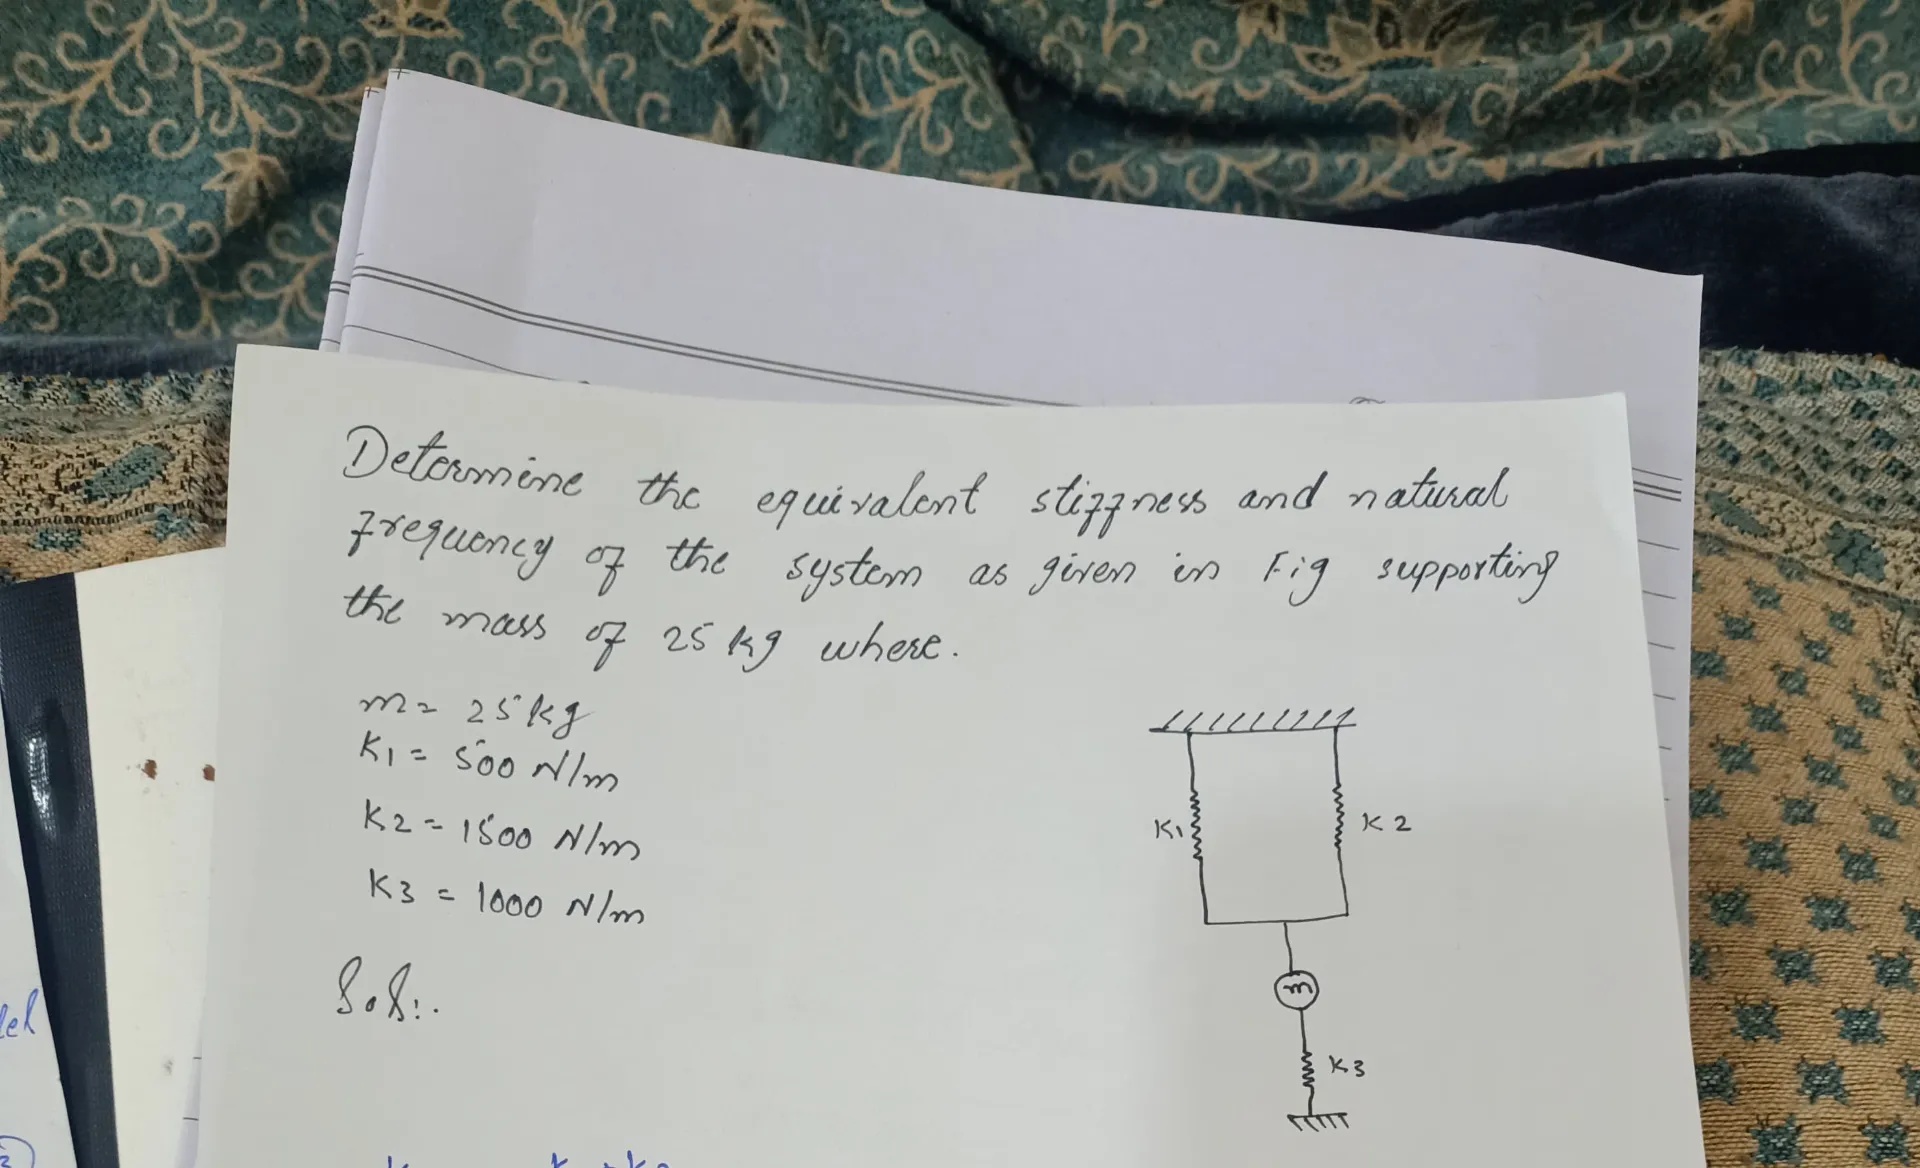 Determine the equivalent stiffness and natural
frequency of the system as given in Fig supporting
the mass of 25 kg where.
m = 25 kg
K1 = 500 N/m
K2 = 1500 N/m
K3 = 1000 N/m
K1
K2
Sol:.
m
K3